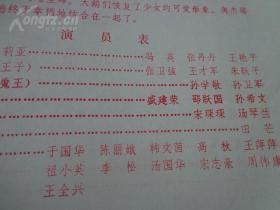 大鹅们恢复了少女的可爱形象。奥杰塔
幸福地结合在一起了。
演 员 表
莉亚 马英 张丹丹 王艳平
王子） 张卫强 王才军 朱跃平
魔王） 孙学敏 孙卫军
戚建荣 邵跃国 孙希文
宋琛琛 汤琴兰
田芒
于国华 陈丽娥 韩文茵 高枚 王萍萍
祖小英 李松 汤国华 宋志豪 周伟康
王全兴